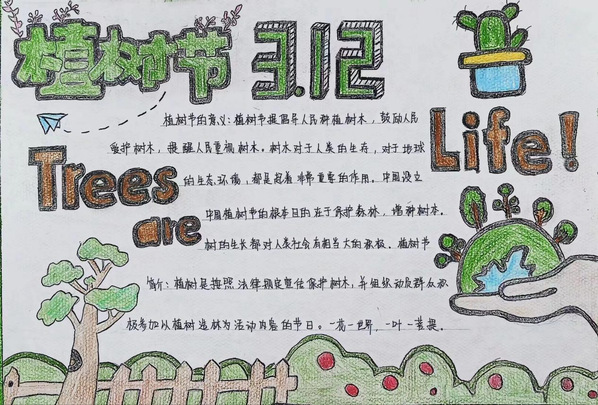 植树节 3.12
植树节的意义：植树节提醒年人民种植树木，鼓励人民
爱护树木，提醒人民重视树木。树木对于人类的生存，对于地球
的生态环境，都是起着非常重要的作用。中国设立
中国植树节的根本目的在于保护森林，增种树木。
树的生长都对人类社会有相当大的
植树节
简介：植树是按照法律规定宣传保护树木，并组织动员群众积
极参加以植树造林为活动内容的节日。一花一世界，一叶一菩提。
Trees
are
Life!